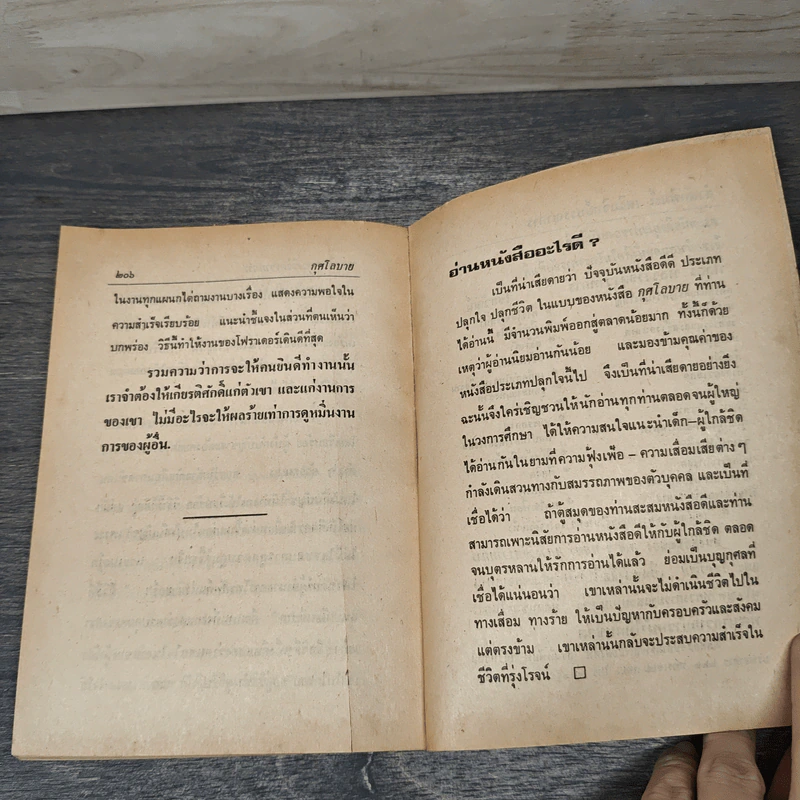 ๒๐๖ กุศโลบาย
ในงานทุกแผนกไต่ถามงานบางเรื่อง แสดงความพอใจใน
ความสำเร็จเรียบร้อย แนะนำชี้แจงในส่วนที่ตนเห็นว่า
บกพร่อง วิธีนี้ทำให้งานของไฟราเดอร์เดินดีที่สุด
รวมความว่าการจะให้คนยินดีทำงานนั้น
เราจำต้องให้เกียรติศักดิ์แก่ตัวเขา และแก่งานการ
ของเขา ไม่มีอะไรจะให้ผลร้ายเท่าการดูหมิ่นงาน
การของผู้อื่น.
อ่านหนังสืออะไรดี ?
เป็นที่น่าเสียดายว่า ปัจจุบันหนังสือดีดี ประเภท
ปลุกใจ ปลุกชีวิต ในแบบของหนังสือ กุศโลบาย ที่ท่าน
ได้อ่านนี้ มีจำนวนพิมพ์ออกสู่ตลาดน้อยมาก ทั้งนี้ก็ด้วย
เหตุว่าผู้อ่านนิยมอ่านกันน้อย และมองข้ามคุณค่าของ
หนังสือประเภทปลุกใจนี้ไป จึงเป็นที่น่าเสียดายอย่างยิ่ง
ฉะนั้นจึงใคร่เชิญชวนให้นักอ่านทุกท่านตลอดจนผู้ใหญ่
ในวงการศึกษา ได้ให้ความสนใจแนะนำเด็ก–ผู้ใกล้ชิด
ได้อ่านกันในยามที่ความฟุ้งเฟ้อ – ความเสื่อมเสียต่าง ๆ
กำลังเดินสวนทางกับสมรรถภาพของตัวบุคคล และเป็นที่
เชื่อได้ว่า ถ้าตู้สมุดของท่านสะสมหนังสือดีและท่าน
สามารถเพาะนิสัยการอ่านหนังสือดีให้กับผู้ใกล้ชิด ตลอด
จนบุตรหลานให้รักการอ่านได้แล้ว ย่อมเป็นบุญกุศลที่
เชื่อได้แน่นอนว่า เขาเหล่านั้นจะไม่ดำเนินชีวิตไปใน
ทางเสื่อม ทางร้าย ให้เป็นปัญหากับครอบครัวและสังคม
แต่ตรงข้าม เขาเหล่านั้นกลับจะประสบความสำเร็จใน
ชีวิตที่รุ่งโรจน์ □